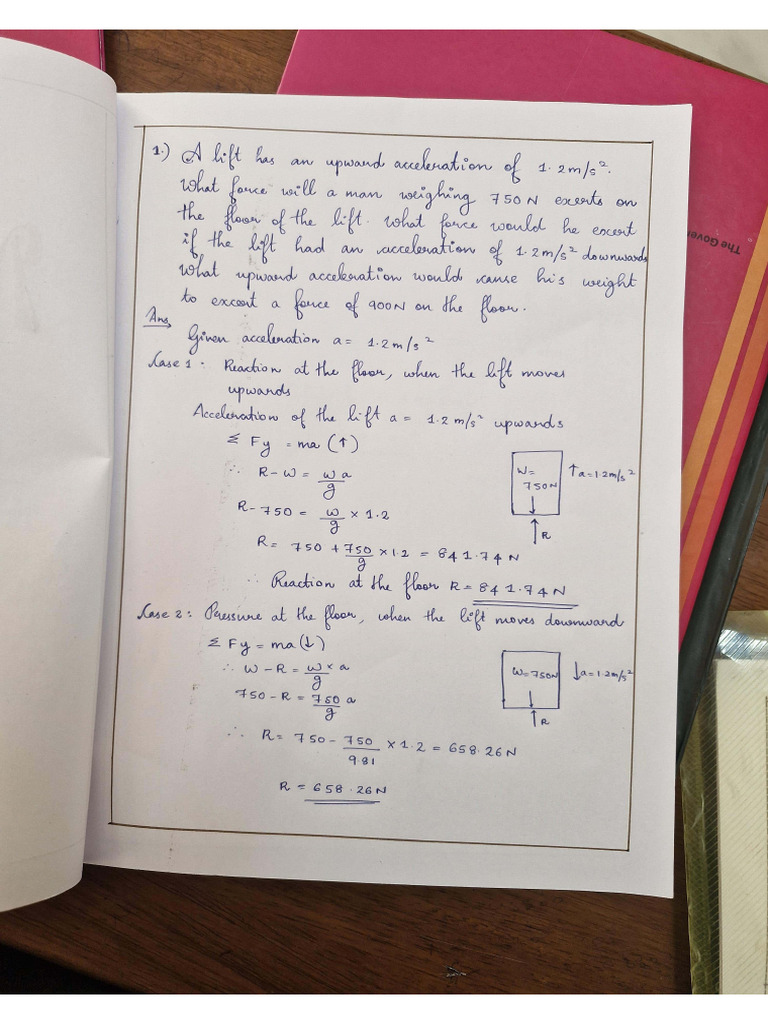 1.) A lift has an upward acceleration of 1.2m/s².
What force will a man weighing 750N exerts on
the floor of the lift. What force would he exert
if the lift had an acceleration of 1.2m/s² downwards
What upward acceleration would cause his weight
to exert a force of 900N on the floor.
Ans
Given acceleration a = 1.2m/s²
Case 1 : Reaction at the floor, when the lift moves
upwards
Acceleration of the lift a = 1.2 m/s² upwards
Σ Fy = ma (↑)
∴ R-W = W/g a
R-750 = W/g × 1.2
R = 750 + 750/g × 1.2 = 841.74 N
∴ Reaction at the floor R = 841.74N
W=
750N
↑a=1.2m/s²
R
Case 2 : Pressure at the floor, when the lift moves downward
Σ Fy = ma (↓)
∴ W-R = W/g × a
750-R = 750/g a
∴ R = 750 - 750/9.81 × 1.2 = 658.26N
R = 658.26N
W=750N
↓a=1.2m/s²
R
The Gover